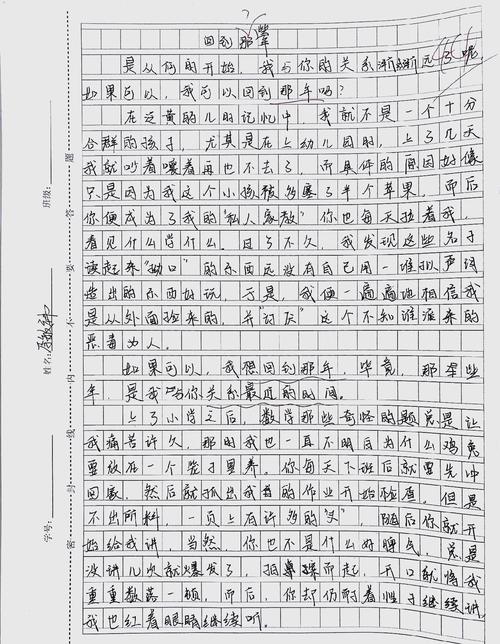 回到那年
是从何时开始，我与你的关系渐渐远了呢，
如果可以，我可以回到那年吗？
在泛黄的儿时记忆中，我就不是一个十分
合群的孩子，尤其是在上幼儿园时，上了几天
我就吵着嚷着再也不去了，而具体的原因好像
只是因为我这个小孩被多塞了半个苹果，而后
你便成为了我的“私人家教”你也每天拉着我，
看见什么学什么。过了不久，我发现这些名字
读起来“拗口”的东西远没有自己用一堆拟声词
造出的东西好玩，于是，我便一滴滴地相信我
是从外面捡来的，并“讨厌”这个不知谁谁来的
恶毒为人。
如果可以，我想回到那年，毕竟，那些
年，是我与你关系最近的时间。
上了小学之后，数学那些奇怪的题总是让
我痛苦许久，那时我也一直不明白为什么鸡兔
要放在一个笼子里养，你每天下班后就要先冲
回家，然后就抓出我的作业开始检查，但是
不出所料，一页上有许多的“乂”，随后你就开
始给我讲，当然，你也不是什么好脾气，总是
没讲几次就爆发了，拍桌而起，开口就将我
重重数落一顿，而后，你却仍耐着性子继续讲
我也红着眼睛继续听。
班级：
姓名：
学号：
密 封 线 内 不 要 答 题